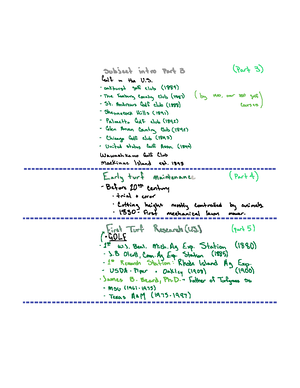 Subject intro Part 3 (Part 3)
Golf in the U.S.
- oakhurst golf club (1884)
- The Country Club (1882) (by 1900, over 900 golf
- St. Andrews Golf club (1888) courses)
- Shinnecock Hills (1891)
- Palmetto Golf club (1892)
- Glen Arven Country Club (1892)
- Chicago Golf club (1893)
- United States Golf Assn. (1894)
Wawashkamo Golf Club
Mackinac Island est. 1898
Early turf maintenance (Part 4)
- Before 20th century
- trial + error
- Cutting height mostly controlled by animals.
- 1830 - First mechanical lawn mower.
First Turf Research (U.S.) (part 5)
• GOLF
- 1st W.J. Beal, Mich. Ag Exp. Station (1880)
- J.B. Olcott, Conn. Ag Exp. Station (1885)
- 1st Research Station - Rhode Island Ag Exp.
- USDA - Piper + Oakley (1908) (1900)
- James B. Beard, Ph.D. - Father of Turfgrass
- MSU (1961-1975)
- Texas A&M (1975-1987)